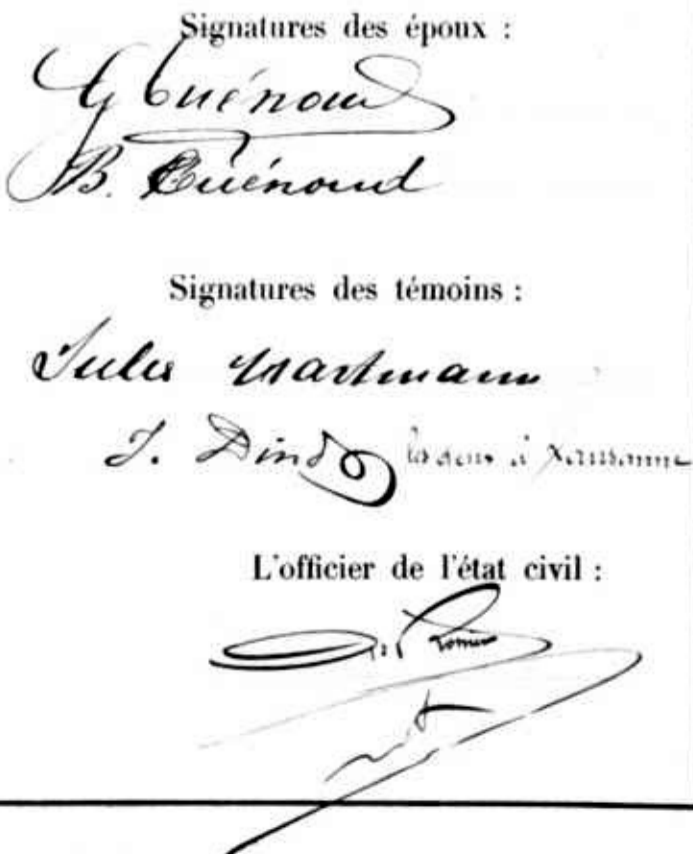 Signatures des époux :
G Cuénoud
B. Cuénoud
Signatures des témoins :
Jules Hartmann
J. Dind les deux à Lausanne
L'officier de l'état civil :